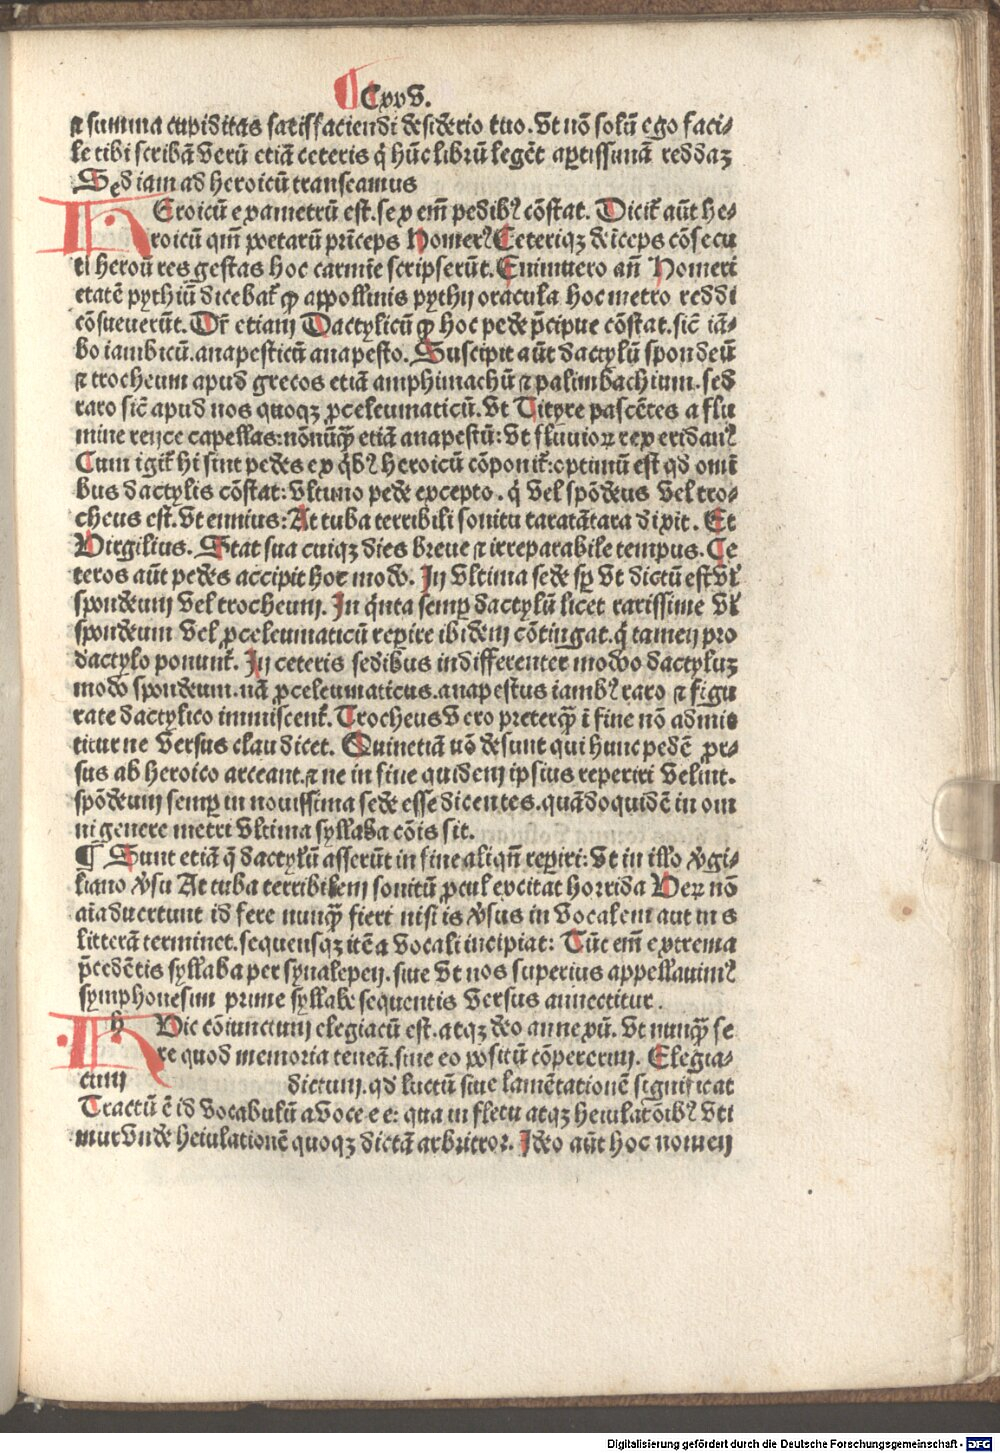 Cxv5.
⁊ summa cupiditas satisfaciendi desiderio tuo. Vt nō solū ego faci-
le tibi scribā Verū etiā ceteris q́ hūc librū legēt aptissimā reddaꝫ
Sed iam ad heroicū transeamus
Eroicū exametrū est. sex em̄ pedibꝰ cōstat. Dicit̄ aūt he-
roicū qm̄ poetarū prīceps Homerꝰ Ceteriqꝫ deiceps cōsecu
ti heroū res gestas hoc carmīe scripserūt. Enimuero an̄ Homeri
etatē pythiū dicebat̄ ꝙ appollinis pythij oracula hoc metro reddi
cōsueuerūt. Dr̄ etiam Dactylicū ꝙ hoc pede p̄cipue cōstat. sic̄ iā-
bo iambicū. anapesticū anapesto. Suscipit aūt dactylū spondeū
⁊ trocheum apud grecos etiā amphimachū ⁊ palimbachium. sed
raro sic̄ apud nos quoqꝫ ꝓceleumaticū. Vt Tityre pascētes a flu
mine reijce capellas: nōnūꝙ̄ etiā anapestū: Vt fluuioꝝ rex eridanꝰ
Cum igit̄ hi sint pedes ex q́bꝰ heroicū cōponit̄: optimū est qd omī
bus dactylis cōstat: Vltimo pede excepto. q́ Vel spōdeus Vel tro-
cheus est. Vt ennius: At tuba terribili sonitu taratātara dixit. Et
Virgilius. Stat sua cuiqꝫ dies breue ⁊ irreparabile tempus. Ce
teros aūt pedes accipit hoc modo. In Vltima sede sꝑ Vt dictū est Vl̄
spondeum Vel trocheum. In q́nta semꝑ dactylū licet rarissime Vl̄
spondeum Vel ꝓceleumaticū reꝑire ibidem cōtingat. q́ tamen pro
dactylo ponunt̄. In ceteris sedibus indifferenter modo dactyluꝫ
modo spondeum. nā ꝓceleumaticus. anapestus iambꝰ raro ⁊ figu
rate dactylico immiscent̄. Trocheus Vero preterꝙ̄ ī fine nō admit
titur ne Versus claudicet. Quinetiā nō desunt qui hunc pedē ꝓr-
sus ab heroico arceant. ⁊ ne in fine quidem ipsius reperiri Velint.
spōdeum semꝑ in nouissima sede esse dicentes. quādoquidē in om
ni genere metri Vltima syllaba cōis sit.
¶ Sunt etiā q̄ dactylū asserūt in fine aliqn̄ reꝑiri: Vt in illo Vꝰgi-
liano Vꝰsu At tuba terribilem sonitū ꝓcul excitat horrida Veꝝ nō
aīaduertunt id fere nunꝙ̄ fieri nisi is Vꝰsus in Vocalem aut m s
litterā terminet. sequensqꝫ itē a Vocali incipiat: Tūc em̄ extrema
p̄cedētis syllaba per synalepen. siue Vt nos superius appellauimꝰ
symphonesim prime syllabe sequentis Versus annectitur.
h Vic cōiunctum elegiacū est. atqꝫ adeo annexū. Vt nunꝙ̄ fe
re quod memoria teneā. siue eo positū cōpererim. Elegia-
cum dictum. qd luctū siue lamētationē significat
Tractū ē id Vocabulū a Voce e e: qua in fletu atqꝫ heiulatōibꝰ Vti
mur Vnde heiulationē quoqꝫ dictā arbitror. Ideo aūt hoc nomen
Digitalisierung gefördert durch die Deutsche Forschungsgemeinschaft - DFG